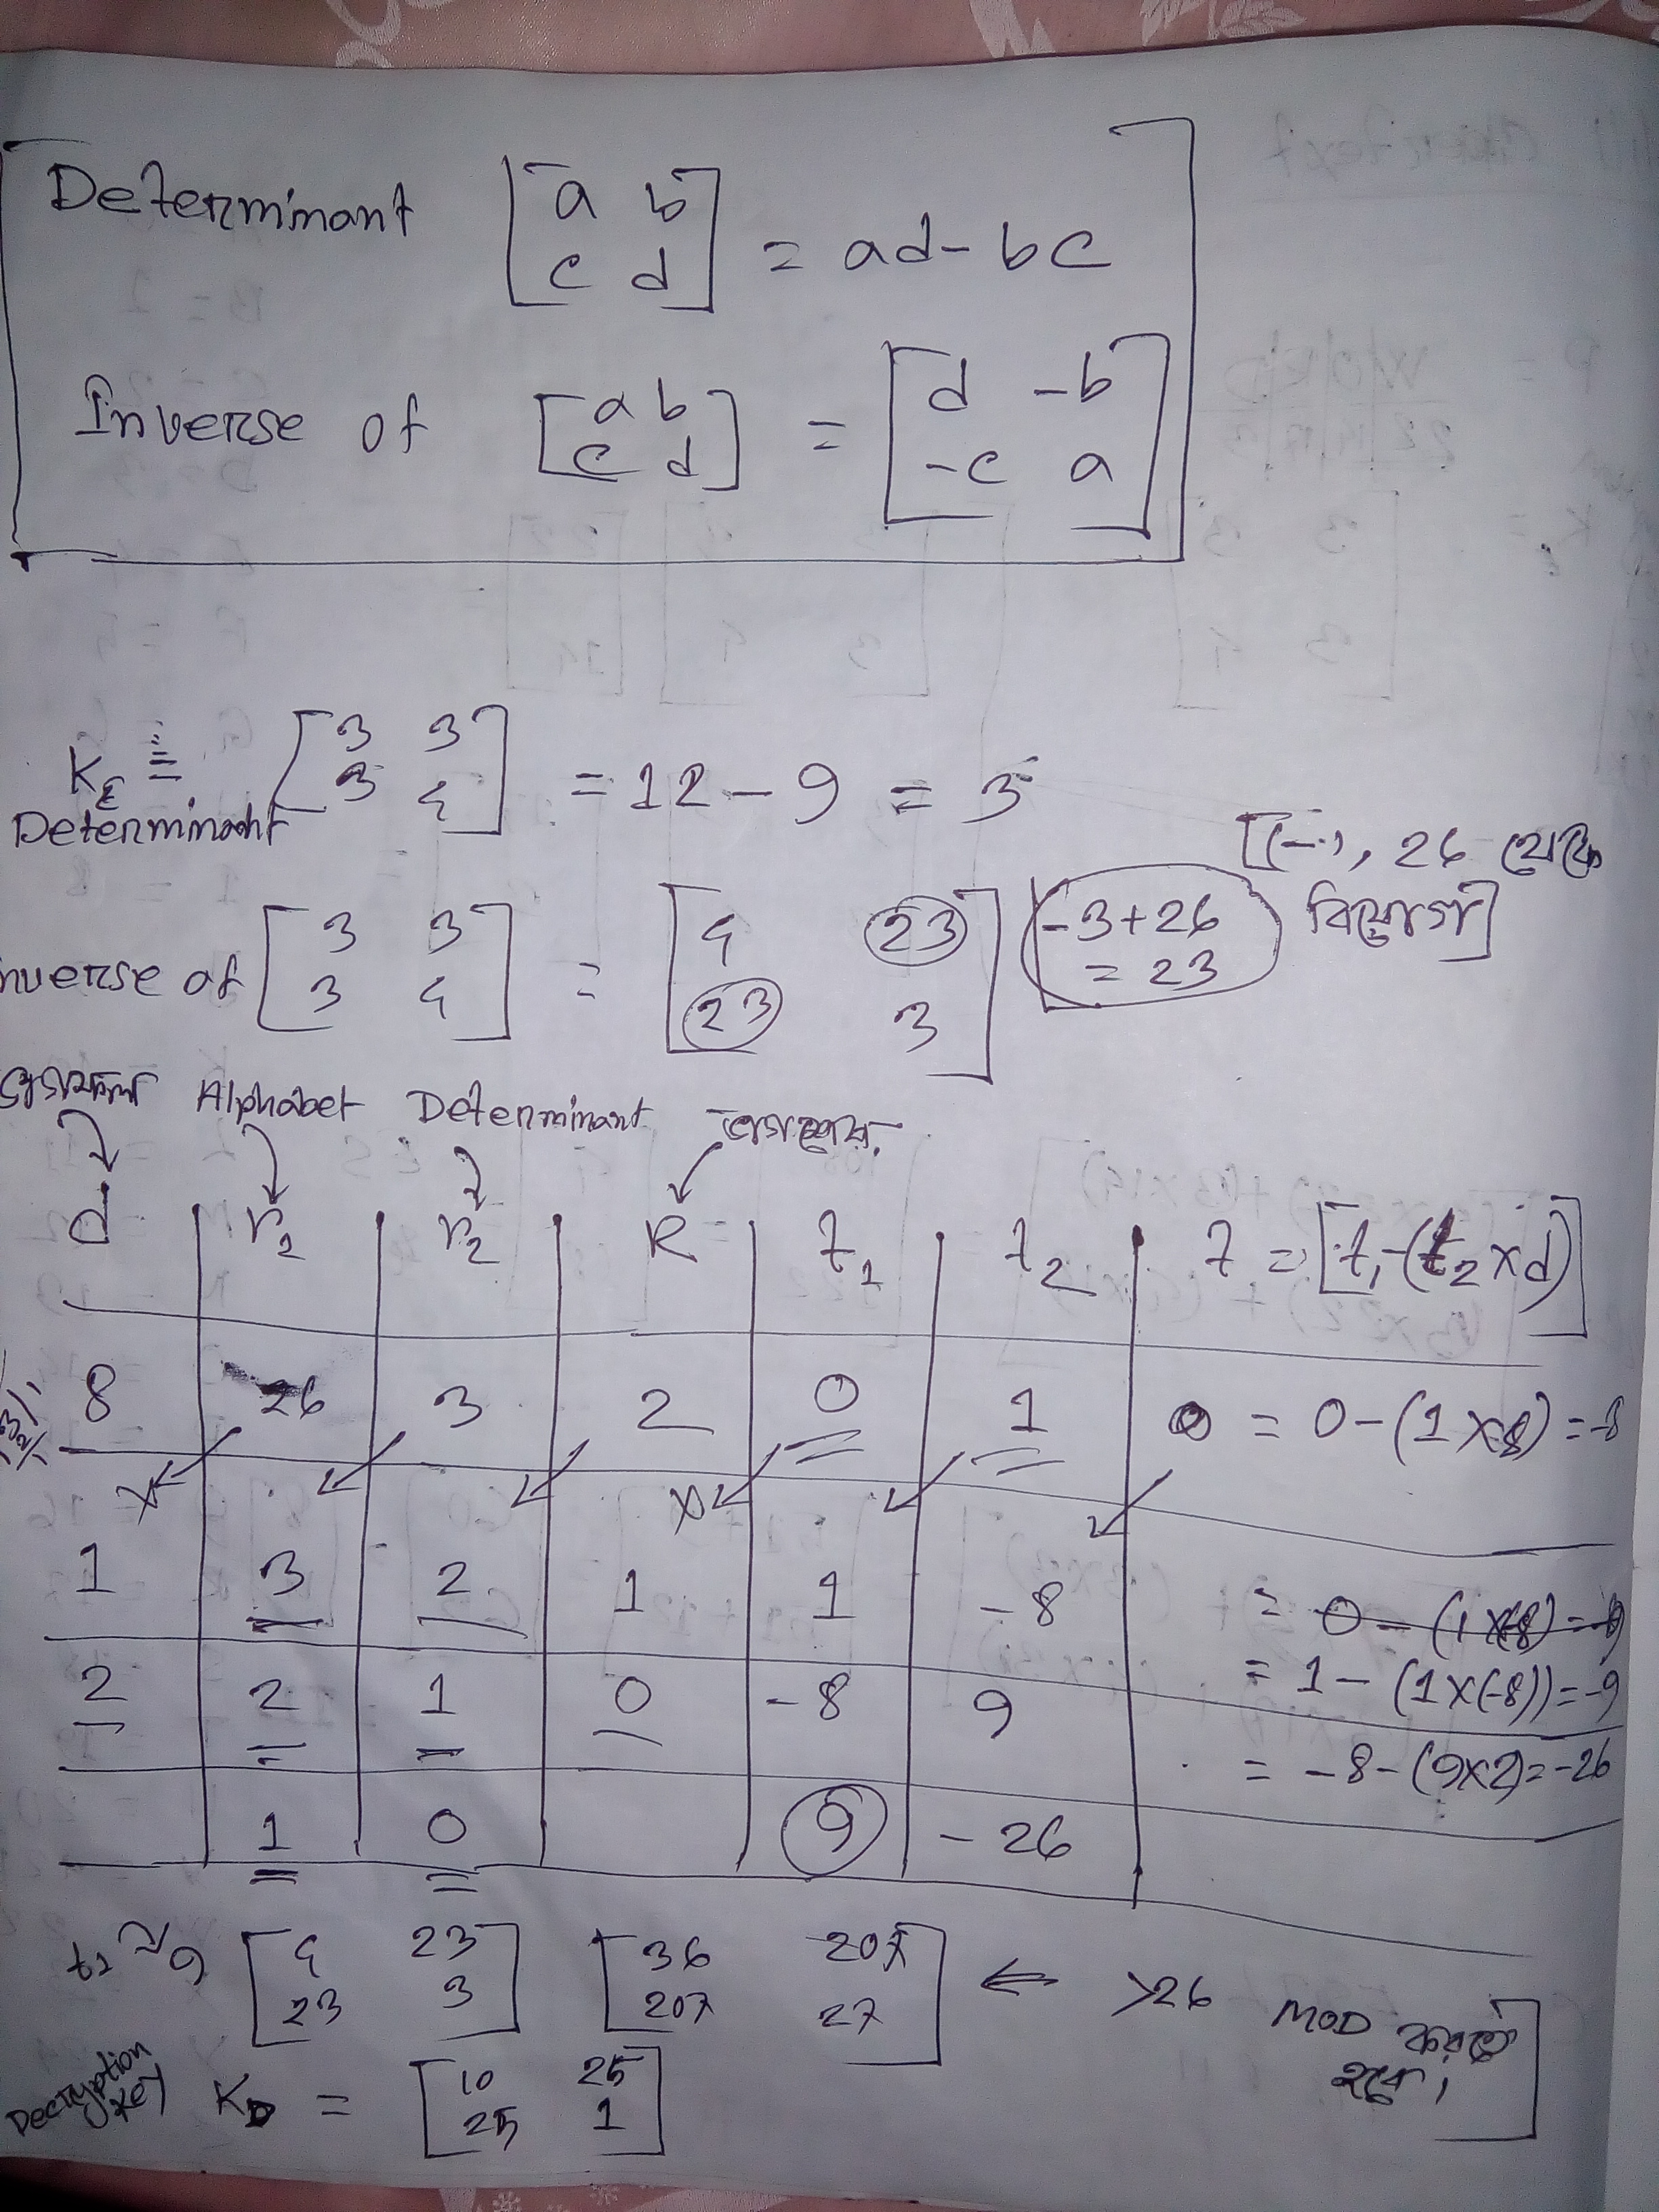 Determinant [a b
c d] = ad - bc
Inverse of [a b
c d] = [d -b
-c a]
K_E = [3 3
3 4] = 12 - 9 = 3
Determinant
[(-), 26 থেকে
বিয়োগ]
nverse of [3 3
3 4] = [4 23
23 3]
-3+26
= 23
ভাগফল Alphabet Determinant ভাগশেষ
d r₂ r₂ R t₁ t₂ t = [t₁-(t₂×d)]
8 26 3 2 0 1 = 0-(1×8) = -8
1 3 2 1 1 -8 = 0-(1×(8) = -9
= 1-(1×(-8)) = -9
2 2 1 0 -8 9 = -8-(9×2) = -26
1 0 9 -26
9 [4 23
23 3] [36 207
207 27] ⇐ >26 MOD করতে
হবে।]
Decryption
Key K_D = [10 25
25 1]